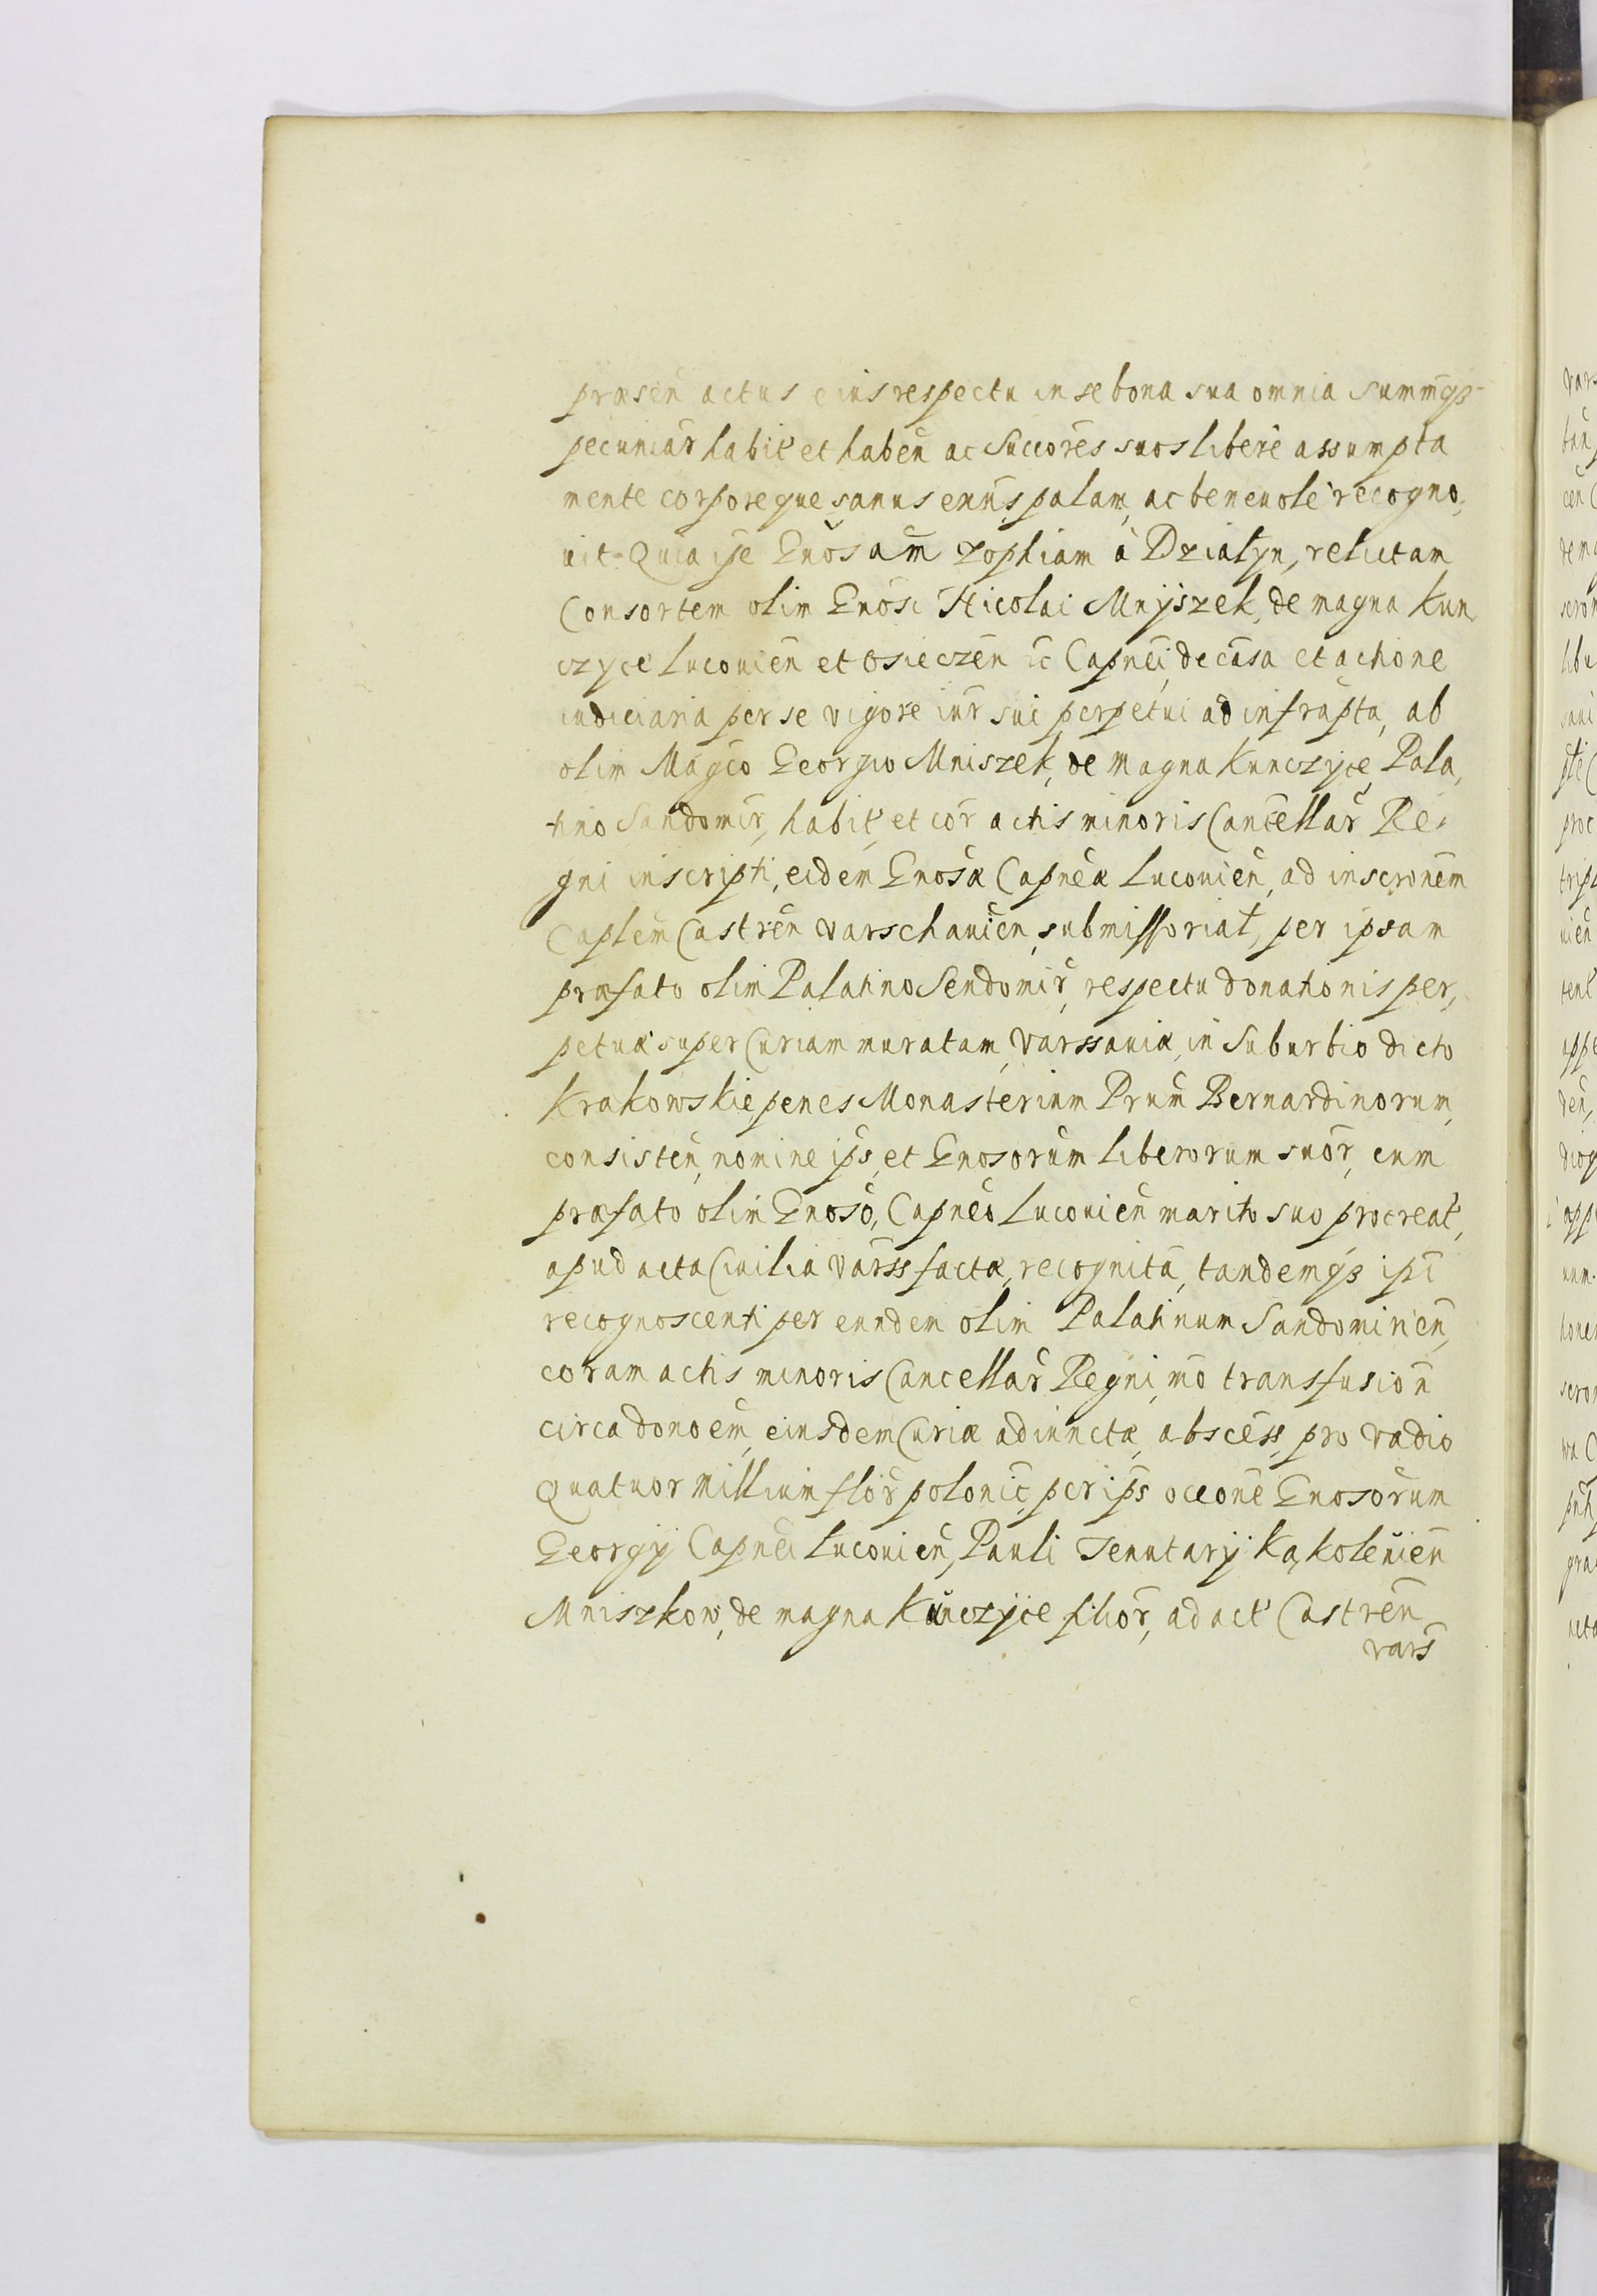 præsen̄ actus eius respectu in se bona sua omnia summqꝫ-
pecuniar̄ habit̄ et haben̄ ac Succores̄ suos libere assumpta
mente corporeque sanus enn̄s palam, ac beneuole recogno,
uit. Quia ip̄e Gnōsam Zophiam à Działyn, relictam
Consortem olim Gnōsi Nicolai Mnyszek, de magna Kun,
czyce Lucouien̄ et Osieczen̄ ic̄ Capn̄ei, de cāsa et actione
iudiciaria per se vigore iur̄ sui perpetui ad infrāpta, ab
olim Mag̃co Georgio Mniszek, de Magna Kunczyce, Pala,
tino Sandomir̄, habit̄, et cor̄ actis minoris Cancellar̄ Re,
gni inscripti, eidem Gnōsæ Capn̄eæ Lucouien̄, ad inscronēm
Caplem̄ Castren̄ Varschauien̄, submissoriat̄, per ipsam
præfato olim Palatino Sendomir̄, respectu donationis per,
petuæ super Curiam muratam, Varssauiæ, in Suburbio dicto
Krakowskie, penes Monasterium Prum̄ Bernardinorum,
consisten̄, nomine ip̄s, et Gnosorum̄ liberorum suor̄, cum
præfato olim Gnosō, Capn̄eo Lucouien̄ marito suo procreat̄,
apud acta Ciuilia Varss̄ factæ, recognita̅, tandemqꝫ ip̄i
recognoscenti per eundem olim Palatinum Sandomirien̄,
coram actis minoris Cancellar̄ Regni, mō transfusion̄
circa donoēm, eiusdem Curiæ adiunctæ, abscēss, pro vadio
Quatuor Millium flor̄ polonic̄, per ip̄s occonē Gnosorum̄
Georgij Capn̄ei Lucouien̄, Pauli Tenutarij Kąkolenien̄
Mniszkow, de magna Kunczyce filior̄, ad act̄ Castren̄
vars̄